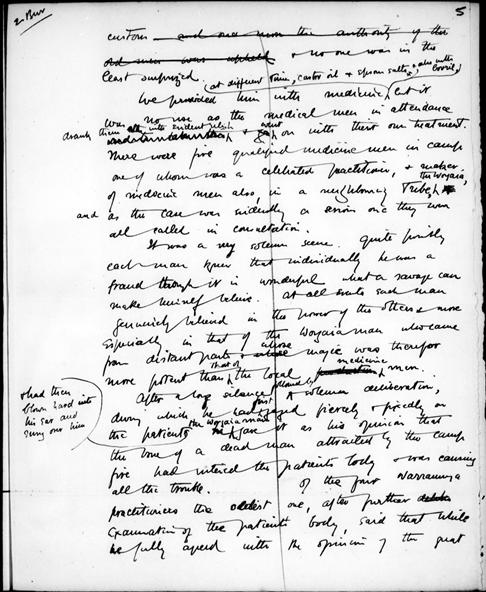 2. Bur
5
custom and once more the authority of the
old men was upheld & no one was in the
least surprized.
(at different times, castor oil & epsom salts, also with
Bovril,)
We provided him with medicine, but it
was no use as the medical men in attendance
drank them with evident relish & went
on with their own treatment.
There were five qualified medicine men in camp
one of whom was a celebrated practitioner, & maker
of medicine men also, in a neighbouring Tribe, the Worgaia,
and as the case was evidently a serious one they were
all called in consultation.
It was a very solemn scene. Quite possibly
each man knew that individually he was a
fraud though it is wonderful what a savage can
make himself believe. At all events each man
genuinely believed in the power of the others & more
especially in that of the Worgaia man who came
from distant parts & whose magic was therefore
more potent than that of the local medicine men.
After a long silence followed by solemn deliberation,
during which he had gazed fiercely & fixedly on
& had then
blown hard into
his ear and
sung over him
the patient, the Worgaia man gave it as his opinion that
the bone of a dead man attracted by the camp
fire had entered the patients body & was causing
all the trouble. Of the four Warramunga
practitioners the oldest one, after further
examination of the patients body, said that while
he fully agreed with the opinion of the great